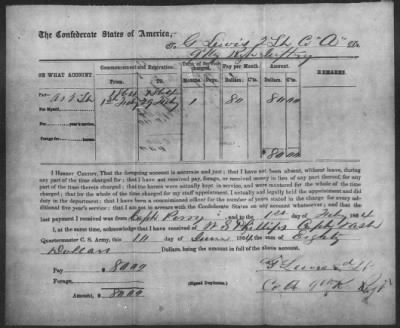 The Confederate States of America,
To G Lewis 2 Lt Co "A" Dr.
9 Ky
ON WHAT ACCOUNT.
Commencement and Expiration.
Term of Service charged.
Pay per Month.
Amount.
REMARKS.
From. To.
Months. Days. Dollars. Cts. Dollars. Cts.
Pay—
For Myself, 1st Feby 29 Feby 1 80 80 00
For year's service.
Forage for horses.
Amount $ 80 00
I HEREBY CERTIFY, That the foregoing account is accurate and just; that I have not been absent, without leave, during
any part of the time charged for; that I have not received pay, forage, or received money in lieu of any part thereof, for any
part of the time therein charged; that the horses were actually kept in service, and were mustered for the whole of the time
charged; that for the whole of the time charged for my staff appointment, I actually and legally held the appointment and did
duty in the department; that I have been a commissioned officer for the number of years stated in the charge for every additional
five year's service; that I am not in arrears with the Confederate States on any account whatsoever; and that the
last payment I received was from Capt Perry and to the 1st day of Feby 1864
I, at the same time, acknowledge that I have received of W S Phillips Capt
Quartermaster C. S. Army, this 10 day of June 1864 Eighty
Dollars Dollars, being the amount in full of the above account.
Pay $ 80 00
Forage,
Amount, $ 80 00
(Signed Duplicates.)
G Lewis 2 Lt
Co A 9 Ky Regt